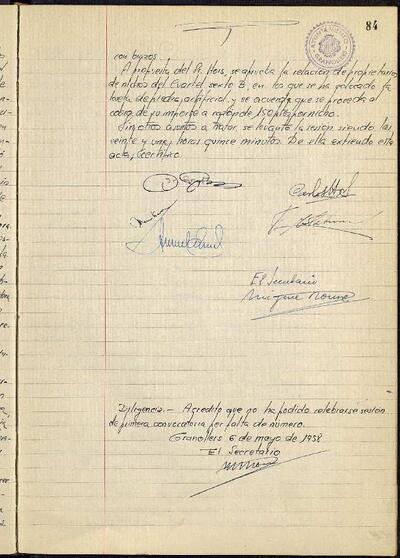 84
AYUNTAMIENTO
GRANOLLERS
con brazos.
A propuesta del Sr. Hors, se aprueba la relación de propietarios
de nichos del Cuartel sexto B, en los que se ha colocado la
losa de piedra artificial, y se acuerda que se proceda al
cobro de su importe a razón de 150 ptas por nicho.
Sin otros asuntos a tratar se levanta la sesión siendo las
veinte y una horas quince minutos. De ella extiendo esta
acta, Certifico.
Carlos
El Secretario
Diligencia.- Acredito que no ha podido celebrarse sesión
de primera convocatoria por falta de número.
Granollers 6 de mayo de 1958
El Secretario